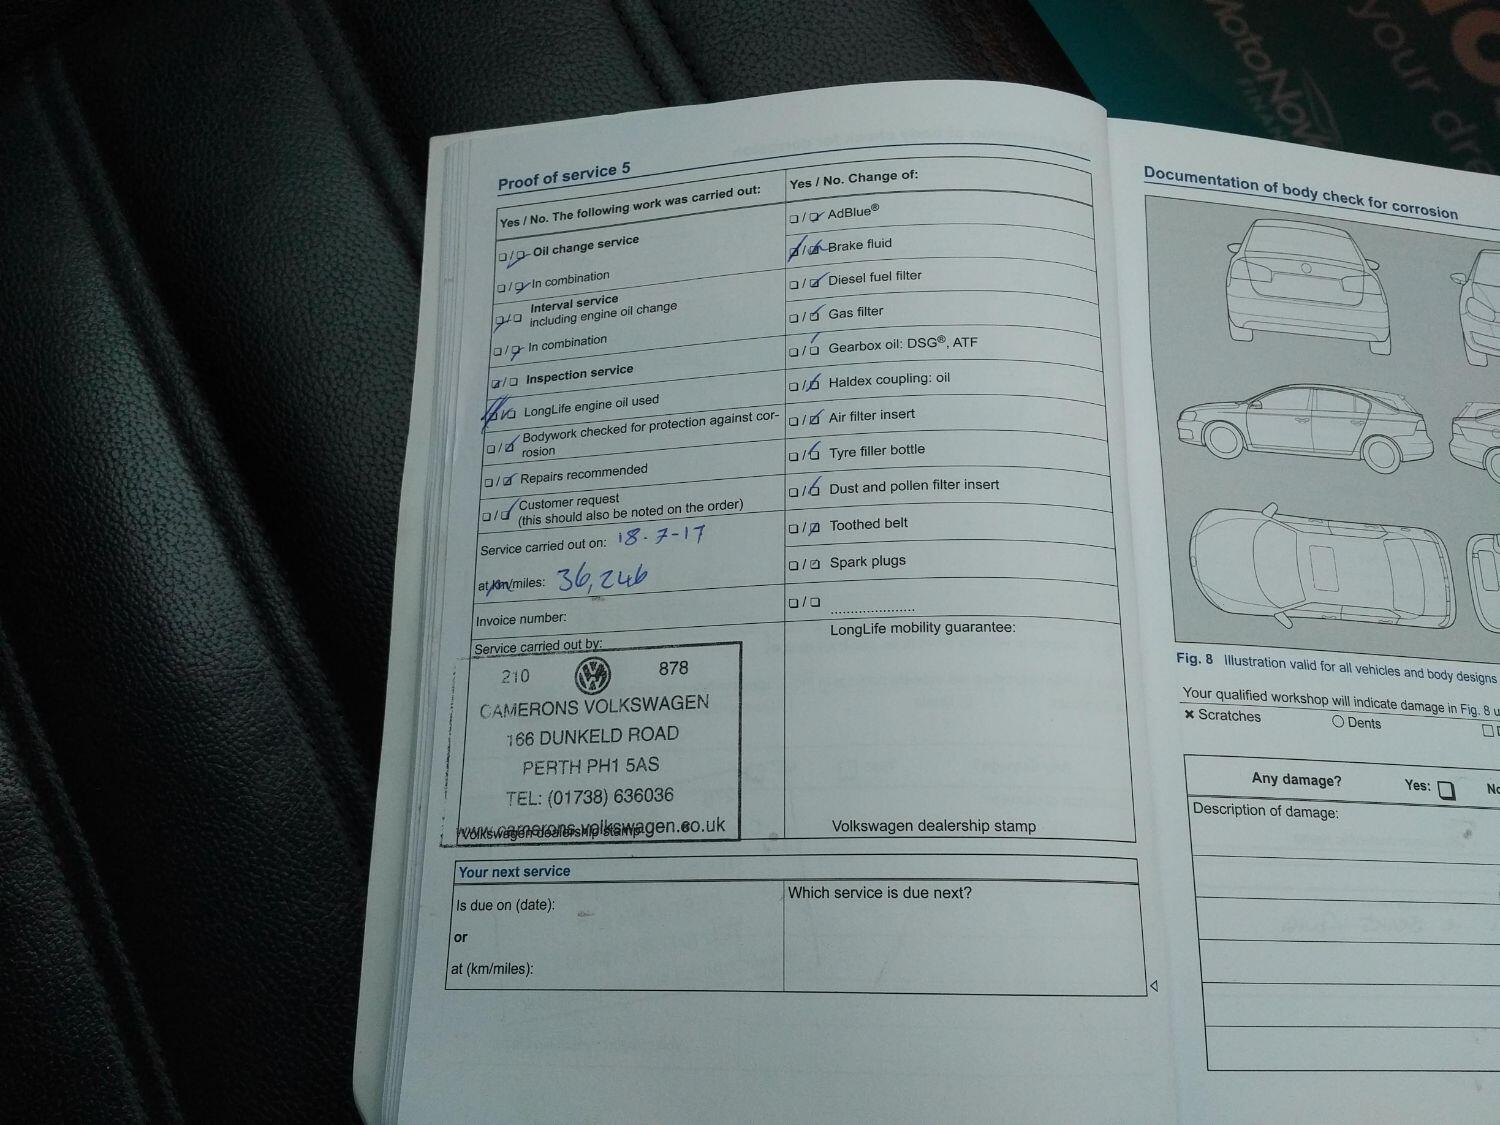 Proof of service 5
Yes / No. The following work was carried out:
Oil change service
In combination
Interval service
including engine oil change
In combination
Inspection service
LongLife engine oil used
Bodywork checked for protection against cor-
rosion
Repairs recommended
Customer request
(this should also be noted on the order)
Service carried out on: 18-7-17
at km/miles: 36,246
Invoice number:
Service carried out by:
210 878
CAMERONS VOLKSWAGEN
166 DUNKELD ROAD
PERTH PH1 5AS
TEL: (01738) 636036
www.camerons.volkswagen.co.uk
Volkswagen dealership stamp
Yes / No. Change of:
AdBlue®
Brake fluid
Diesel fuel filter
Gas filter
Gearbox oil: DSG®, ATF
Haldex coupling: oil
Air filter insert
Tyre filler bottle
Dust and pollen filter insert
Toothed belt
Spark plugs
LongLife mobility guarantee:
Volkswagen dealership stamp
Your next service
Is due on (date):
or
at (km/miles):
Which service is due next?
Documentation of body check for corrosion
Fig. 8 Illustration valid for all vehicles and body designs
Your qualified workshop will indicate damage in Fig. 8 u
Scratches
Dents
Any damage? Yes: No
Description of damage:
MotoNov
your dre